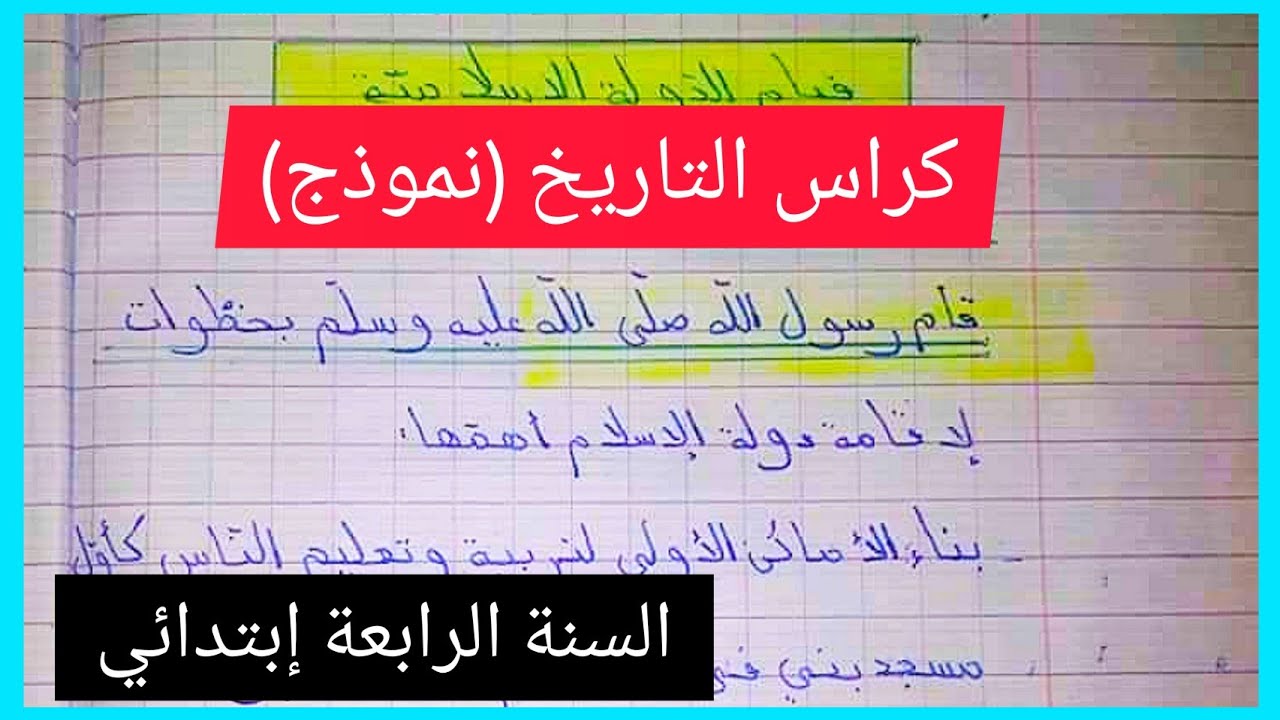 قيام الدولة الاسلامية
كراس التاريخ (نموذج)
قام رسول اللّه صلّى اللّه عليه وسلّم بخطوات
لإقامة دولة الإسلام أهمّها:
- بناء الأماكن الأولى لتربية وتعليم النّاس كأوّل
السنة الرابعة إبتدائي
مسجد بني في